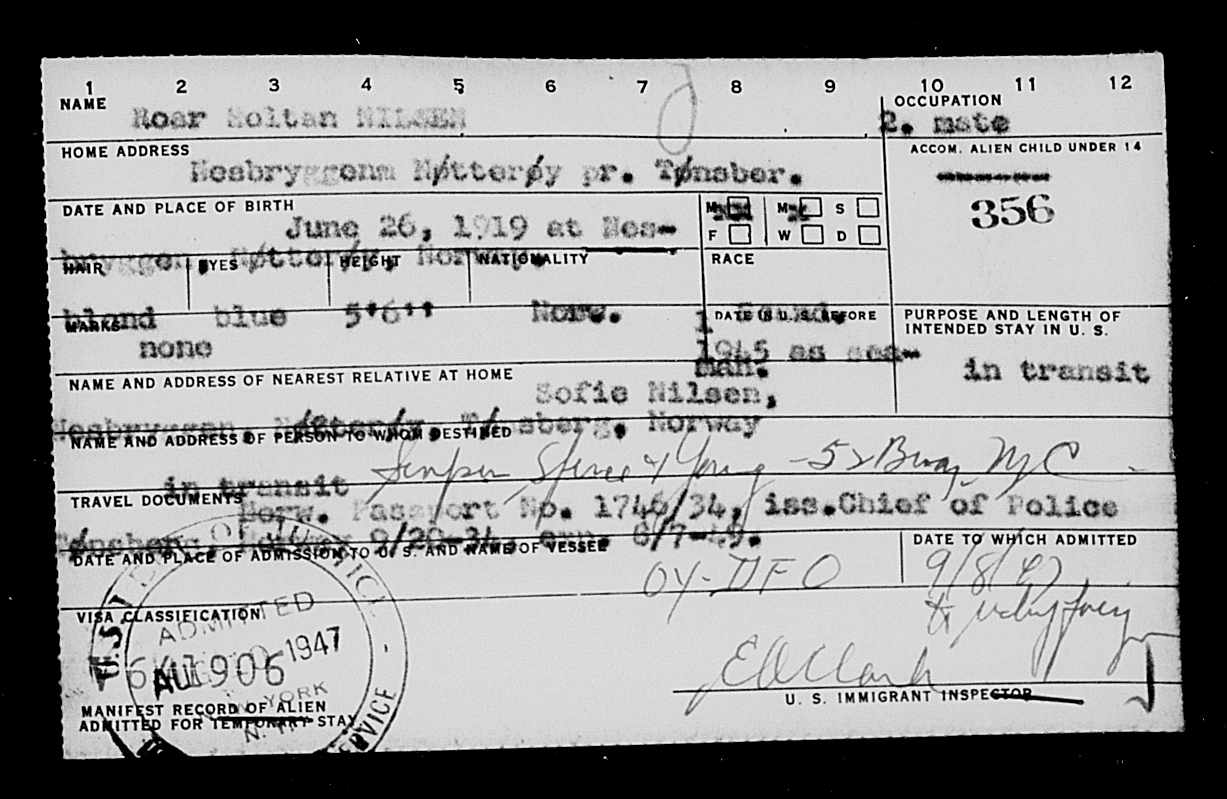 1 2 3 4 5 6 7 8 9 10 11 12
NAME
Roar Soltan NILSEN
OCCUPATION
2. mate
HOME ADDRESS
Nesbryggenn Nøtterøy pr. Tønsber.
ACCOM. ALIEN CHILD UNDER 14
356
DATE AND PLACE OF BIRTH
June 26, 1919 at Nes-
bryggen, Nøtterøy, Norway.
M M S
F W D
HAIR EYES HEIGHT NATIONALITY RACE
blond blue 5'6'' Norw. Scand.
MARKS
none
DATE IN U.S. BEFORE
1
1945 as sea-
man.
PURPOSE AND LENGTH OF
INTENDED STAY IN U. S.
in transit
NAME AND ADDRESS OF NEAREST RELATIVE AT HOME
Sofie Nilsen,
Nesbryggen, Nøtterøy, Tønsberg, Norway
NAME AND ADDRESS OF PERSON TO WHOM DESTINED
in transit - 52 Bway NYC -
TRAVEL DOCUMENTS
Norw. Passport No. 1746/34, iss. Chief of Police
Tønsberg, 9/20-34, 6/7-49.
DATE AND PLACE OF ADMISSION TO U. S. AND NAME OF VESSEL
OY-DFO
DATE TO WHICH ADMITTED
9/8/47
VISA CLASSIFICATION
ADMITTED
1947
N. YORK
N.Y.
SERVICE
E Clark
U. S. IMMIGRANT INSPECTOR
MANIFEST RECORD OF ALIEN
ADMITTED FOR TEMPORARY STAY